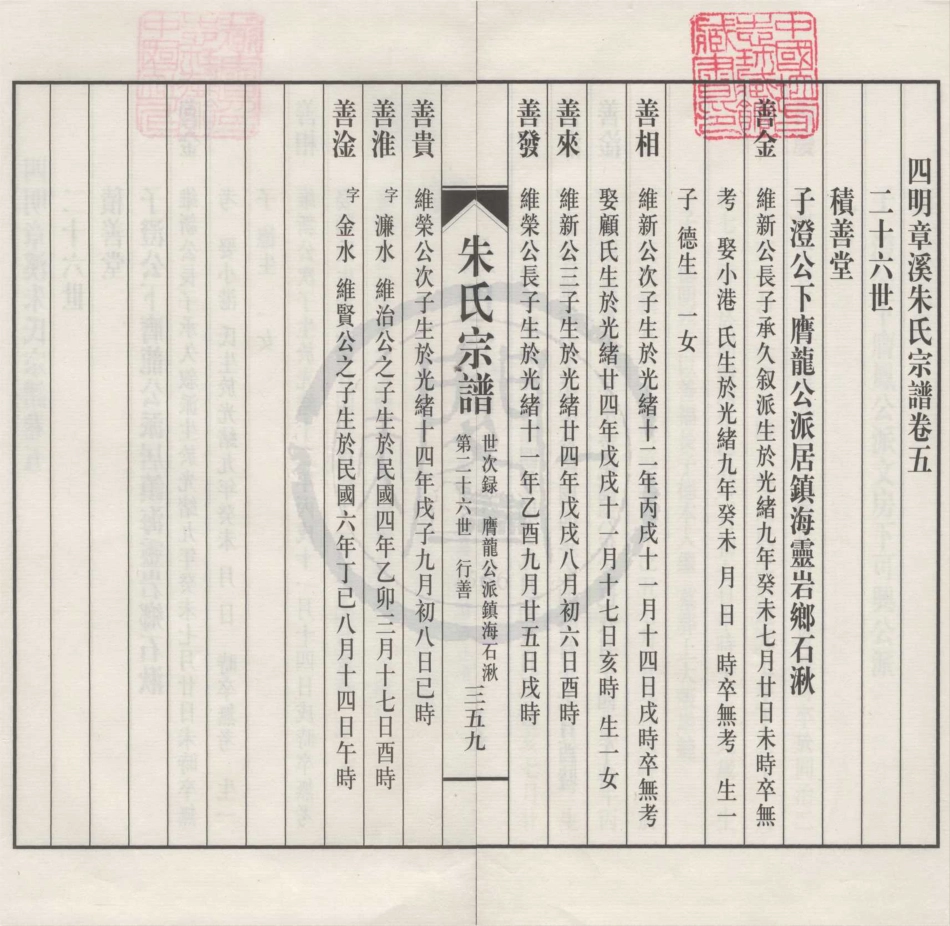 四明章溪朱氏宗譜卷五
二十六世
積善堂
子澄公下膺龍公派居鎮海靈岩鄉石湫
善金 維新公長子承久叙派生於光緒九年癸未七月廿日未時卒無
考 娶小港 氏生於光緒九年癸未 月 日 時卒無考 生一
子 德生 一女
善相 維新公次子生於光緒十二年丙戌十一月十四日戌時卒無考
娶顧氏生於光緒廿四年戊戌十一月十七日亥時 生一女
善來 維新公三子生於光緒廿四年戊戌八月初六日酉時
善發 維榮公長子生於光緒十一年乙酉九月廿五日戌時
朱氏宗譜
世次録 膺龍公派鎮海石湫
第二十六世 行善
三五九
善貴 維榮公次子生於光緒十四年戊子九月初八日巳時
善淮 字 濂水 維治公之子生於民國四年乙卯三月十七日酉時
善淦 字 金水 維賢公之子生於民國六年丁巳八月十四日午時